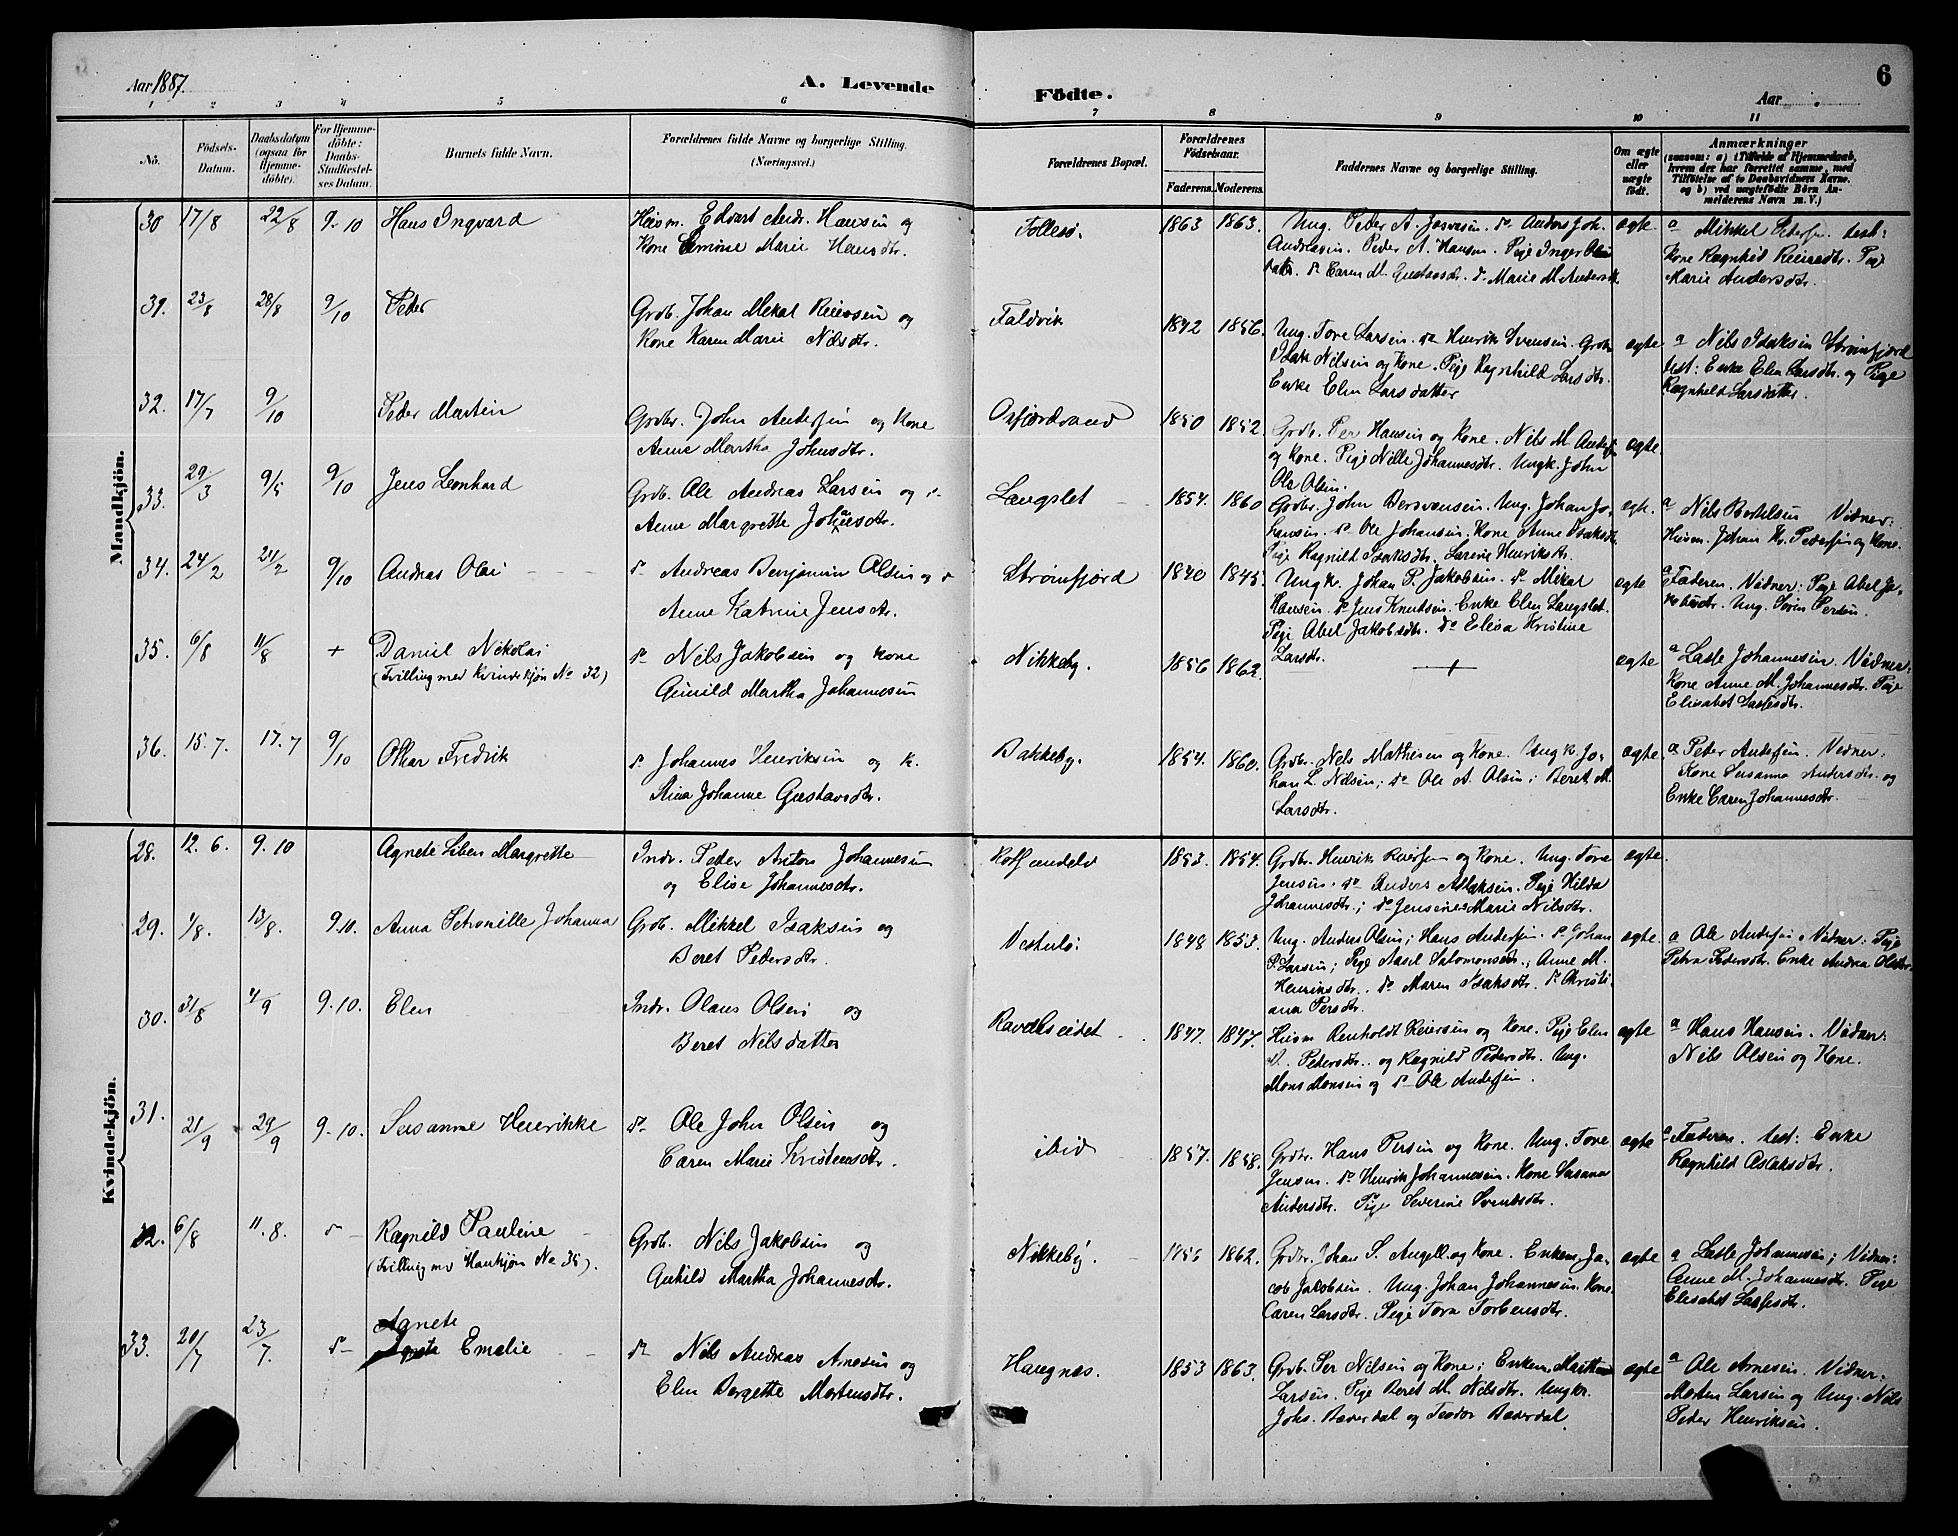 Aar 1887.
A. Levende
Födte.
Aar
6
1 2 3 4 5 6 7 8 9 10 11
No.
Födsels-Datum.
Daabsdatum (ogsaa for Hjemme-döbte).
For Hjemme-döbte: Daabs-Stadfæstel-ses Datum.
Barnets fulde Navn.
Forældrenes fulde Navne og borgerlige Stilling.
(Næringsvei.)
Forældrenes Bopæl.
Forældrenes Födselsaar.
Faderens. Moderens.
Faddernes Navne og borgerlige Stilling.
Om ægte eller uægte födt.
Anmærkninger
(saasom: a) i Tilfælde af Hjemmedaab,
hvem der har forrettet samme, med
Tilföielse af to Daabsvidners Navne,
og b) ved uægtefödte Börn An-
melderens Navn m. V.)
Mandkjön.
30 17/8 22/8 9-10 Hans Ingvard
Edvart Andr. Hansen og
Kone Marie Hansdtr.
1863 1863.
Ung. Peder A. do Anders Joh.
Peder A. Hansen. Pige Inger
do Caren M. Gustavsdtr. do Marie M.
ægte.
a Mikkel Pedersen. test:
Kone Ragnhild Reiersdtr. Pige
Marie Andersdtr.
31. 23/8 28/8 9/10 Peder
Grdb. Johan Mikal Reiersen og
Kone Karen Marie Nilsdtr.
Taldvik
1842 1856.
Ung. Tore Larsen. do Henrik Svensen. Grdbr
Isak Nilsen og Kone. Pige Ragnhild Larsdtr.
Enke Elen Larsdatter
ægte
a Nils Isaksen Strömfjord
test: Enke Elen Larsdtr. og Pige
Ragnhild Larsdatter.
32. 17/7 9/10 Peder Martin
Grdbr. John Andersen og Kone
Anne Martha Johnsdtr.
Oxfjordsund
1850 1852.
Grdb. Per Hansen og Kone. Nils M. Anders
og Kone. Pige Nille Johannesdtr. Ungk. John
Ole Olsen.
ægte
33. 29/3 9/5 9/10 Jens Leonhard
Grdb. Ole Andreas Larsen og do
Anne Margrette Johnsdtr.
Langslet
1854. 1860
Grdbr. John Ung. Johan Jo-
hansen. do Ole Johansen. Kone Anne Isaksdtr
Pige Ragnild Isaksdtr. Henriksdtr.
ægte.
a Nils Bertelsen Vidner:
Husm. Johan Kr. Pedersen og Kone.
34. 24/2 24/2 9/10 Andreas Olai
do Andreas Benjamin Olsen og do
Anne Katrine Jensdtr.
Strömfjord
1840 1845.
Ungk. Johan P. Jakobsen. do Mikal
Hansen. do Jens Knutsen. Enke Elen Langslet.
Pige Abel Jakobsdtr. do Elisa Kristine
Larsdtr.
ægte
a Faderen. Vidner: Pige Abel Ja-
kobsdtr. Ung. Sören Persen.
35. 6/8 11/8 + Daniel Nikolai
(Tvilling med Kvindekjøn No 32)
do Nils Jakobsen og Kone
Gunild Martha Johannesen
Nikkeby
1856 1862.
+
ægte
a Lasle Johannesen. Vidner:
Kone Anne M. Johannesdtr. Pige
Elisabet Laslesdtr.
36. 15. 7. 17. 7 9/10 Otkar Fredrik
do Johannes Henriksen og K.
Stina Johanne Gustavsdtr.
Bakkeby.
1854. 1860.
Grdbr. Nils Mathisen og Kone. Ungk. Jo-
han L. Nilsen; do Ole A. Olsen; Beret M.
Larsdtr.
ægte.
a Peder Andersen. Vidner.
Kone Susanna Andersdtr. og
Enke Caren Johannesdtr.
Kvindekjön.
28. 12. 6. 9. 10 Agnete Margrette
Indr. Peder Anton Johannesen
og Elise Johannesdtr.
1853. 1854.
Grdbr. Henrik Reiersen og Kone. Ung. Tore
Jensen. do Anders Aslaksen. Pige Hilda
Johannesdtr.; do Jensine Marie Nilsdtr.
ægte.
29. 1/8. 13/8. 9.10. Anna Petronille Johanna
Grdb. Mikkel Isaksen og
Beret Pedersdtr.
1848 1853.
Ung. Anders Olsen; Hans Andersen. do Johan
P. Larsen; Pige Aasel Salomonsdtr.; Anne M.
Henriksdtr. do Maren Isaksdtr. do Christi-
ana Persdtr.
ægte.
a Ole Andersen. Vidner: Pige
Petra Pedersdtr. Enke Andrea Olsdtr.
30. 31/8 4/9 9.10. Elen
Indr. Olaus Olsen og
Beret Nilsdatter
Ravelseidet
1847. 1847.
Husm Renholdt Reiersen og Kone. Pige Elen
Pedersdtr. og Ragnild Pedersdtr. Ung.
Mons Monsen og do Ole Andersen.
ægte
a Hans Hansen. Vidner:
Nils Olsen og Kone.
31. 21/9 29/9 9.10. Susanne Henrikke
do Ole John Olsen og
Caren Marie Kristensdtr.
ibid
1857. 1858.
Grdbr. Hans Persen og Kone. Ung. Tore
Jensen. do Henrik Johannesen. Kone Susanna
Andersdtr. Pige Severine Svendsdtr.
ægte
a Faderen. test: Enke
Ragnhild Aslaksdtr.
32. 6/8 11. 8. do Ragnild Pauline
(Tvilling med Hankjøn No 35).
Grdb. Nils Jakobsen og
Gunhild Martha Johannesdtr.
Nikkeby.
1856 1862.
Grdbr. Johan S. Angell og Kone. Enkem. Ja-
cob Jakobsen. Ung. Johan Johannesen. Kone
Caren Larsdtr. Pige Tora Torbensdtr.
ægte
a Lasle Johannesen; Vidner:
Anne M. Johannesdtr. Pige
Elisabet Laslesdtr.
33. 20/7 23/7. do Agnete
Emelie
do Nils Andreas Arnesen og
Elen Bergette Mortensdtr.
Haugnes.
1853 1863.
Grdb. Per Nilsen og Kone; Enkem.
Larsen. Pige Beret M. Nilsdtr. Ungkr.
Johs. Bæverdal og Teodor Bæverdal.
ægte
a Ole Arnesen. Vidner.
Morten Larsen og Ung. Nils
Peder Henriksen.